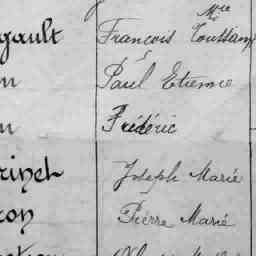 Mie
gault François Toussain
Paul Etienne
Frédéric
rinel Joseph Marie
ron Pierre Marie